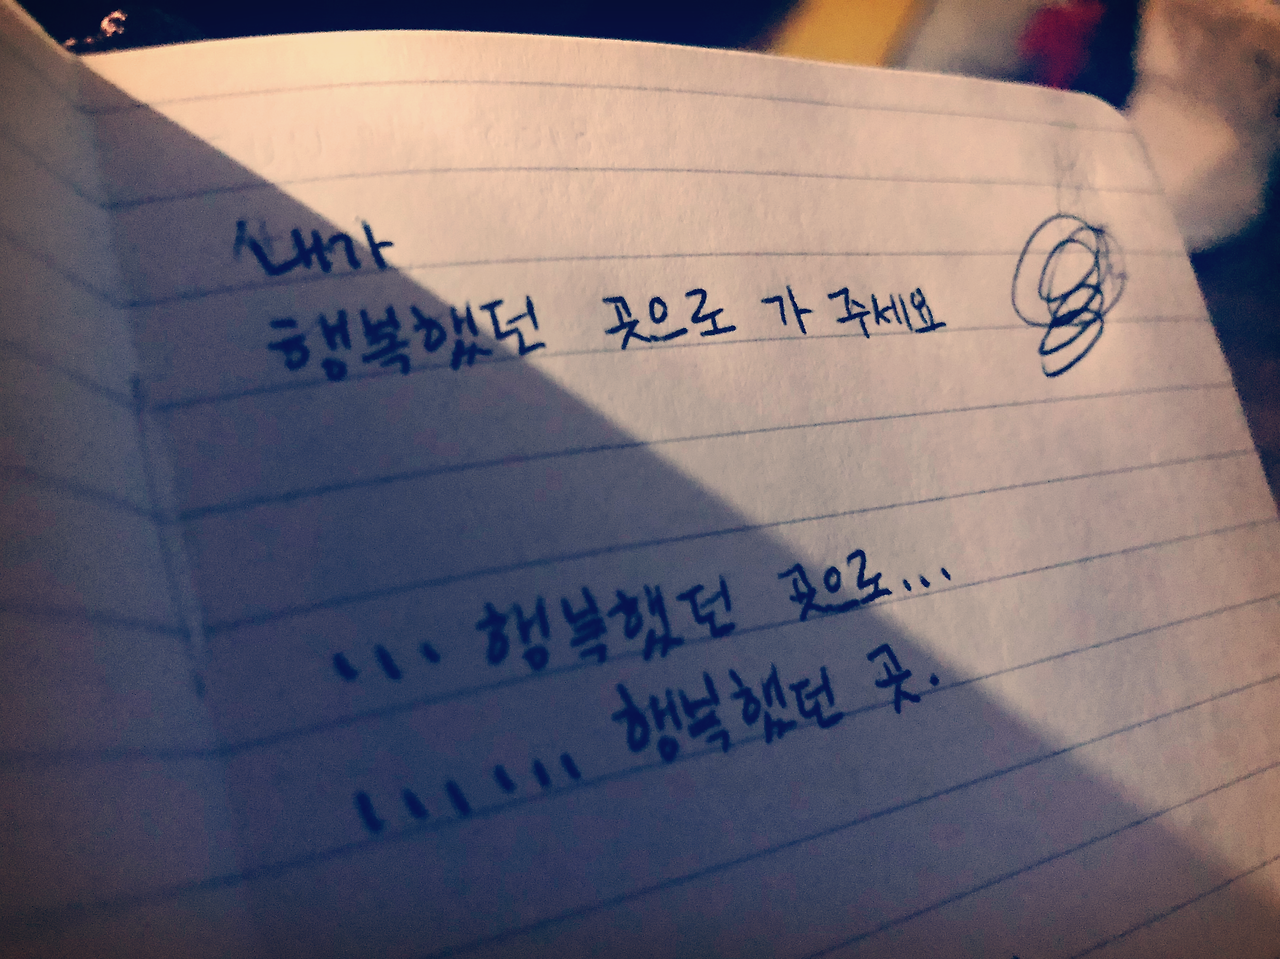 내가
행복했던 곳으로 가 주세요
... 행복했던 곳으로...
...... 행복했던 곳.